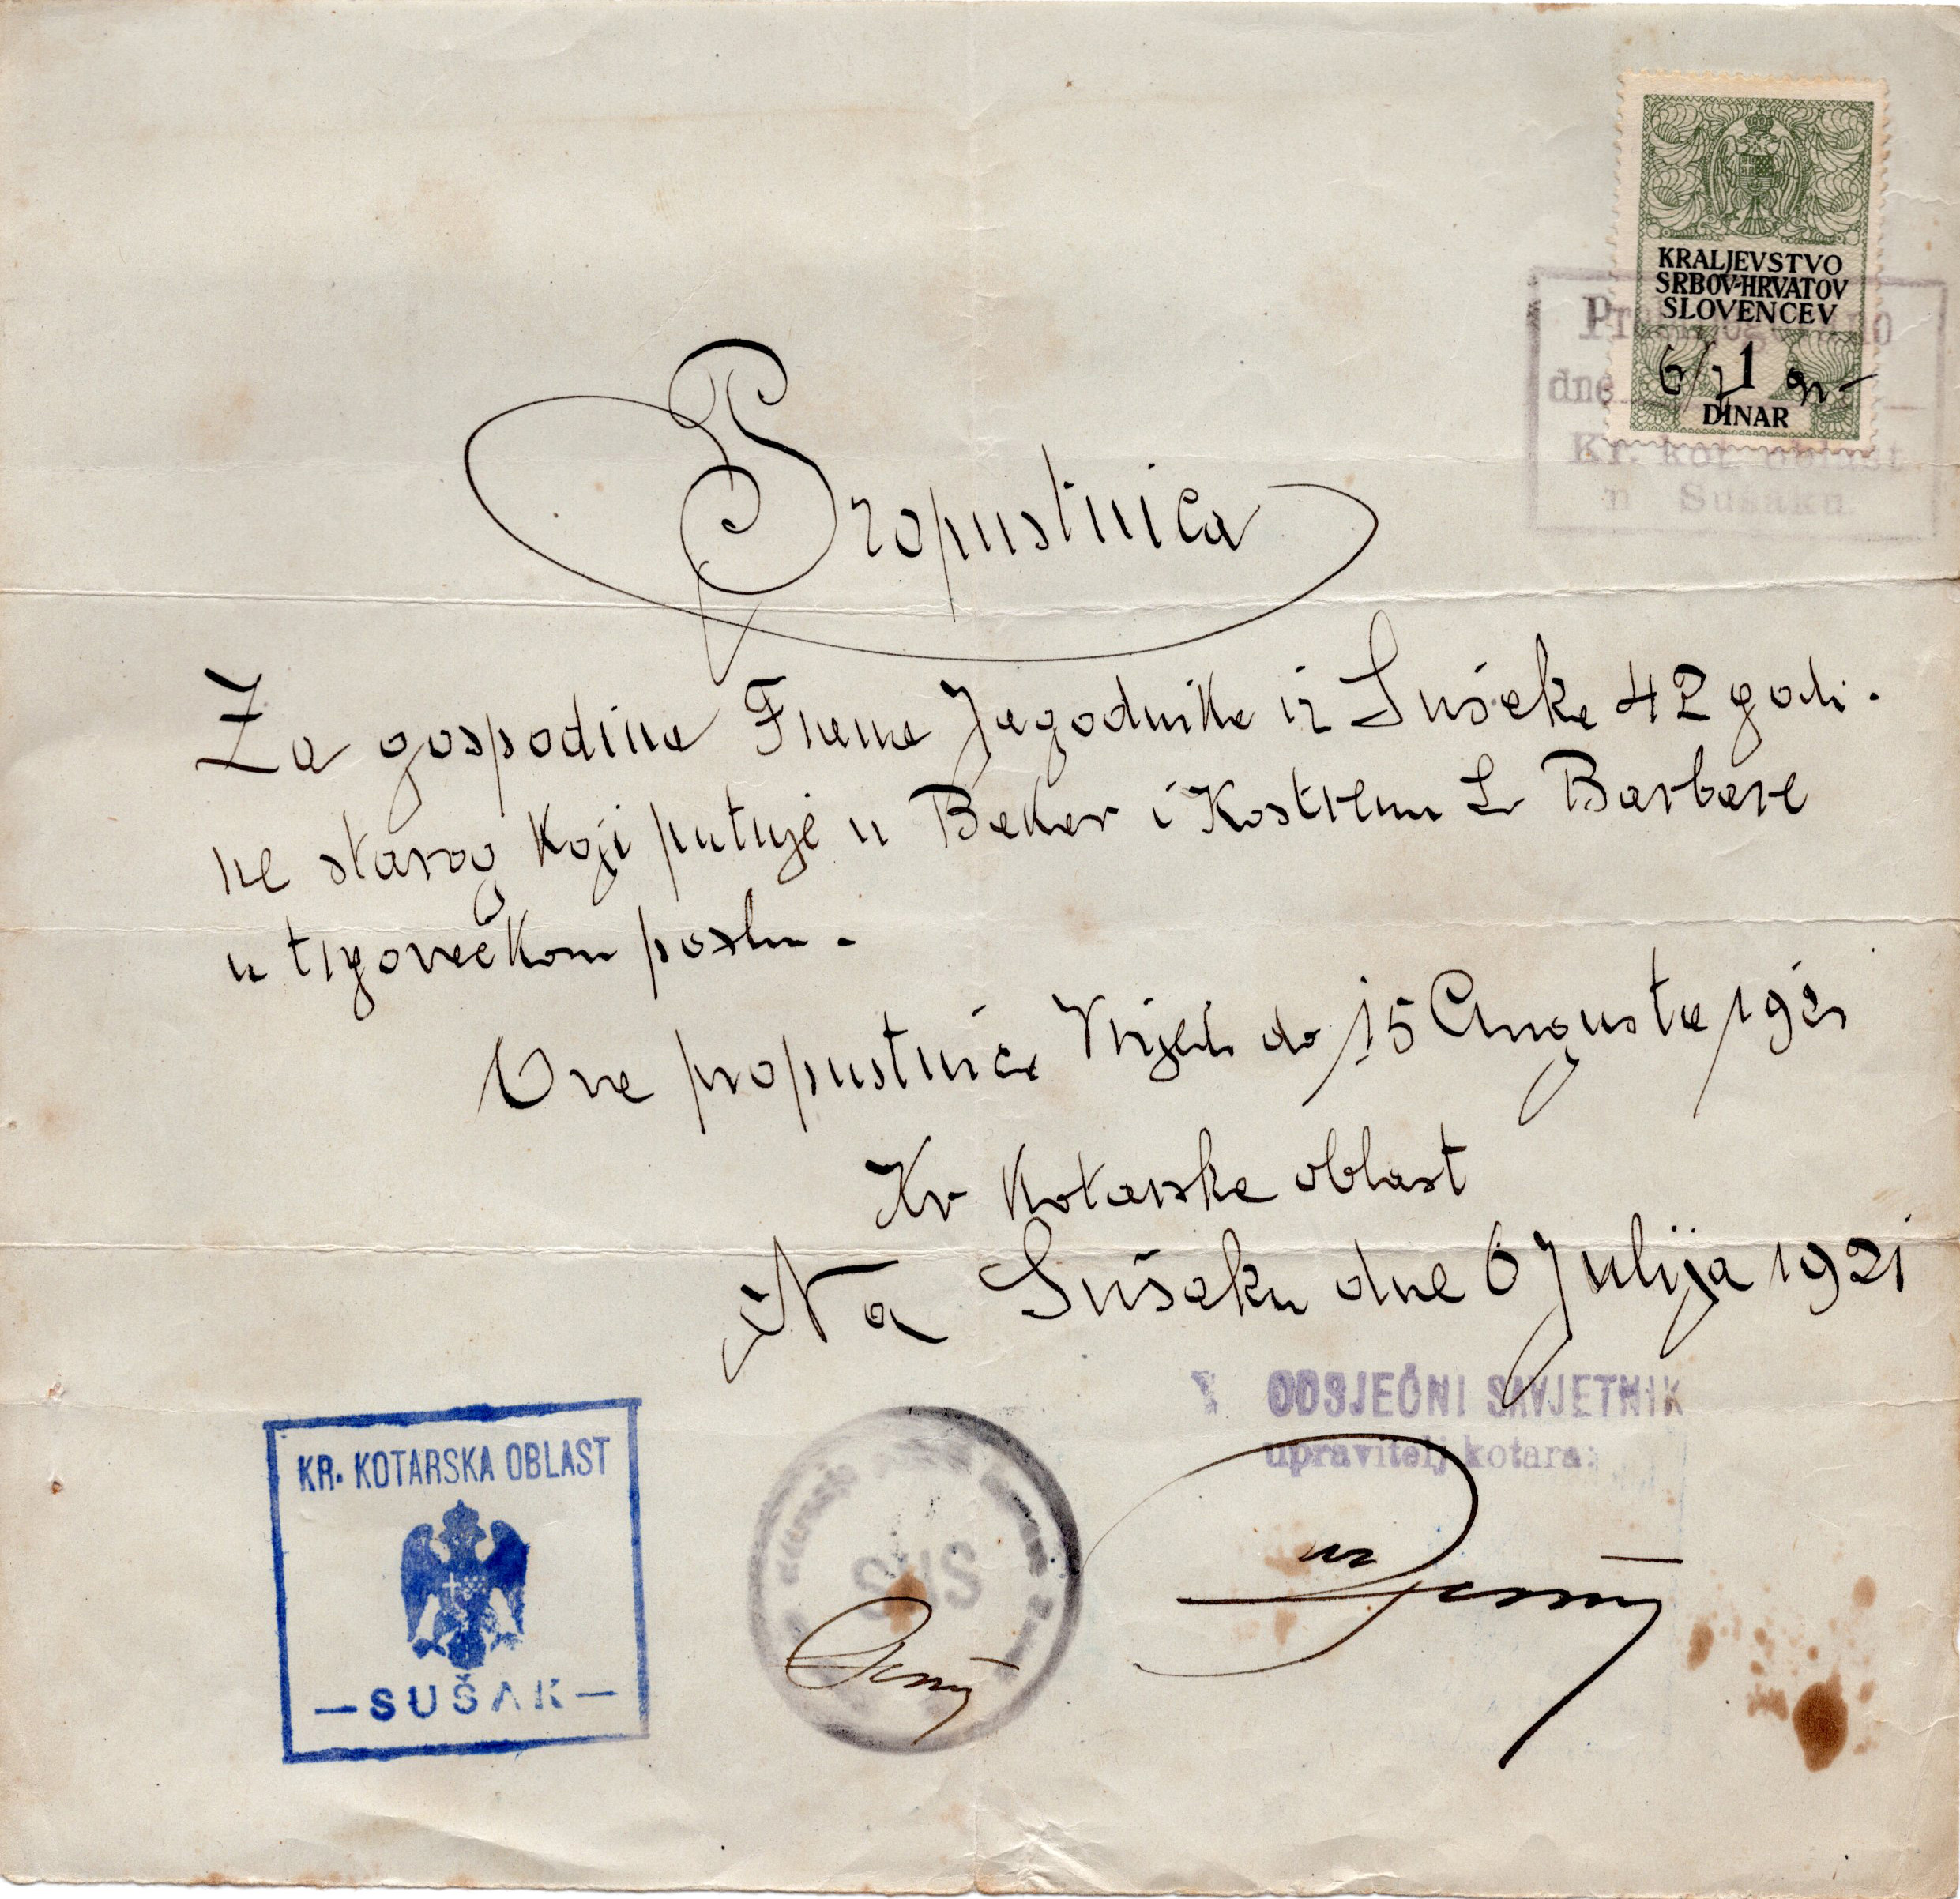 KRALJEVSTVO
SRBOV-HRVATOV
SLOVENCEV
6/7 1
DINAR
dne
Kr. kot. oblast
Sušaku.
Propustnica
Za gospodina Frana Jagodnika iz Sušaka 42 godi-
ne starog koji putuje u Bakar i Kostrenu S Barbare
u trgovačkom poslu.
Ova propustnica vrijedi do 15 Augusta 1921
Kr Kotarska oblast
Na Sušaku dne 6 Julija 1921
ODSJEČNI SAVJETNIK
upravitelj kotara:
KR. KOTARSKA OBLAST
—SUŠAK—
SHS